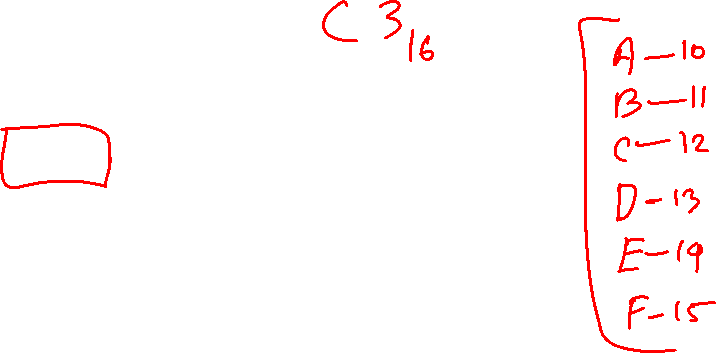 C3₁₆
A—10
B—11
C—12
D-13
E-14
F-15